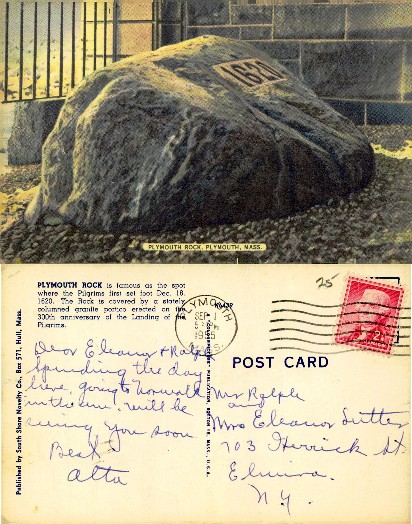 1620
PLYMOUTH ROCK, PLYMOUTH, MASS.
PLYMOUTH ROCK is famous as the spot
where the Pilgrims first set foot Dec. 18,
1620. The Rock is covered by a stately
columned granite portico erected on the
300th anniversary of the Landing of the
Pilgrims.
Published by South Shore Novelty Co., Box 571, Hull, Mass.
Dear Eleanor & Ralph
Spending the day
here going to Norwalk
in the
seeing you soon
Best
Alta
PLYMOUTH
SEP 1
1955
MASS.
25
POST CARD
Mr Ralph
and
Mrs Eleanor Sutter
703 Herrick St
Elmira
N.Y.